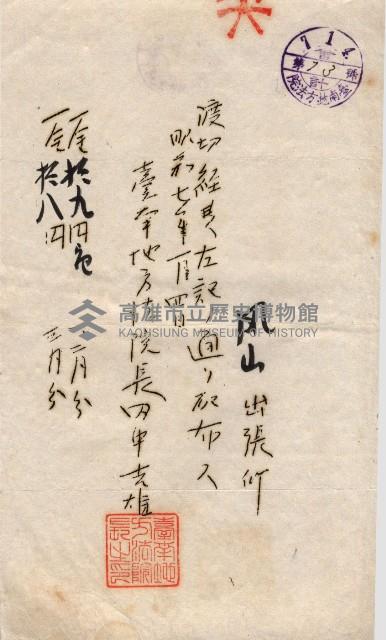 鳳山出張所
渡切経費左記ノ通リ配布ス
昭和七年一月四日
臺南地方法院長田中吉雄
一金拾九円也 二月分
一金拾八円 三月分
7 1 4
會計
第73號
臺南地方法院
臺南地方法院長之印
高雄市立歷史博物館
KAOHSIUNG MUSEUM OF HISTORY